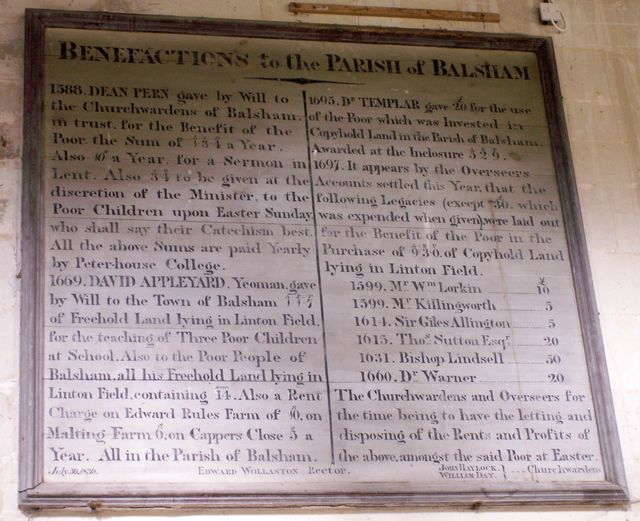 BENEFACTIONS to the PARISH of BALSHAM
1588. DEAN PERN gave by Will to
the Churchwardens of Balsham,
in trust, for the Benefit of the
Poor, the Sum of a Year.
Also a Year, for a Sermon in
Lent. Also to be given at the
discretion of the Minister, to the
Poor Children upon Easter Sunday,
who shall say their Catechism best.
All the above Sums are paid Yearly
by Peter-house College.
1669. DAVID APPLEYARD, Yeoman, gave
by Will to the Town of Balsham
of Freehold Land lying in Linton Field,
for the teaching of Three Poor Children
at School. Also to the Poor People of
Balsham, all his Freehold Land lying in
Linton Field, containing 14. Also a Rent
Charge on Edward Rules Farm of 10, on
Malting Farm 6, on Cappers Close 5 a
Year. All in the Parish of Balsham.
1695. Dr TEMPLAR gave 20 for the use
of the Poor which was Invested in
Copyhold Land in the Parish of Balsham.
Awarded at the Inclosure 3 2 9.
1697. It appears by the Overseers
Accounts settled this Year, that the
following Legacies (except 30. which
was expended when given) were laid out
for the Benefit of the Poor in the
Purchase of of Copyhold Land
lying in Linton Field.
£
1599. Mr Wm Lorkin 10
1599. Mr Killingworth 5
1614. Sir Giles Allington 5
1615. Thos Sutton Esqr 20
1631. Bishop Lindsell 50
1660. Dr Warner 20
The Churchwardens and Overseers for
the time being to have the letting and
disposing of the Rents and Profits of
the above, amongst the said Poor at Easter.
July, 30, 1830. EDWARD WOLLASTON Rector. JOHN HAYLOCK, } Churchwardens
WILLIAM DAY,